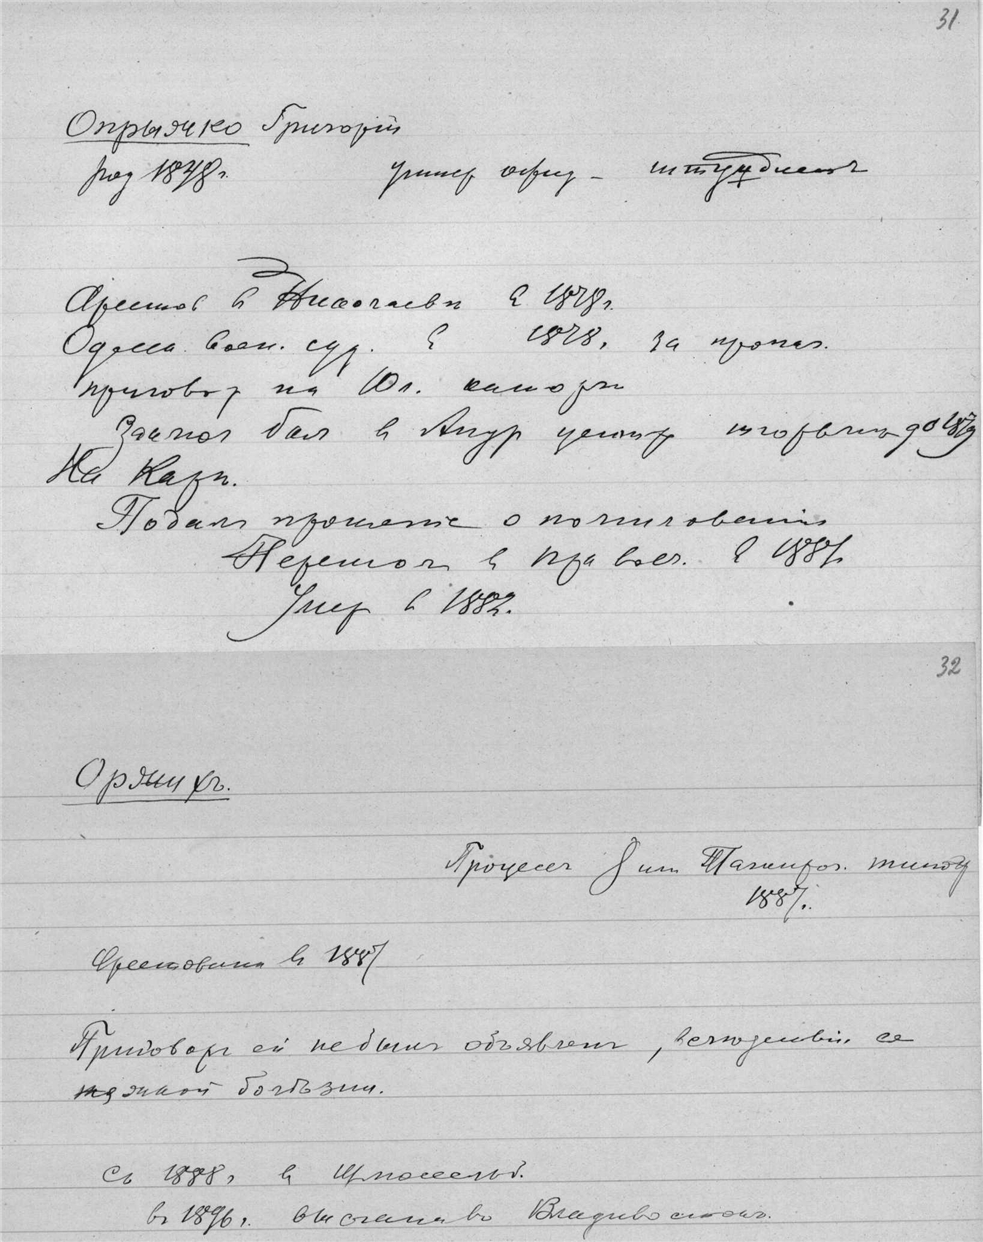 31
Опрышко Григорій
род 1848г. унтер офиц – штундистъ
Арестов в Николаеве в 1878г.
Одесск. воен. суд. в 1878, за пропаг.
приговор на 10 л. каторги
Заключ был в центр тюрьме до 1879
На Каре.
Подалъ прошеніе о помилованіи
Перешол в 1881.
Умер в 1882.
32
Оржихъ.
Процессъ Таганрог. типогр
1887.
Арестована в 1887
Приговоръ ей не былъ объявленъ, вслѣдствіи ея
тяжкой болѣзни.
съ 1888, в
въ 1896г. выслана во Владивостокъ.